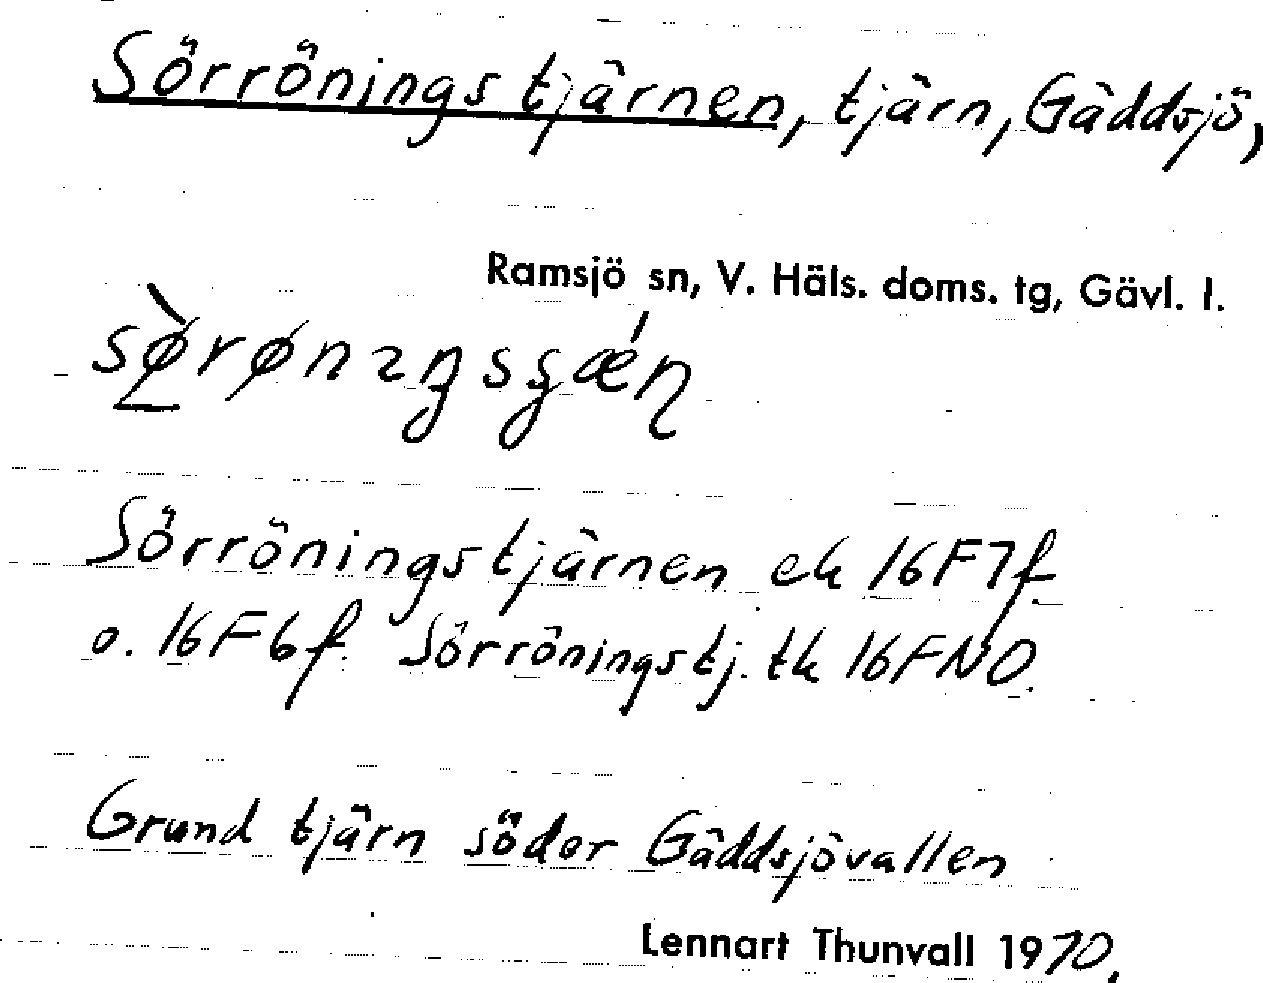 Sörrönings tjärnen, tjärn, Gäddsjö,
Ramsjö sn, V. Häls. doms. tg, Gävl. l.
Sörröningstjärnen ek 16F7f
o. 16F6f. Sörröningstj. tk 16FNO.
Grund tjärn söder Gäddsjövallen
Lennart Thunvall 1970.